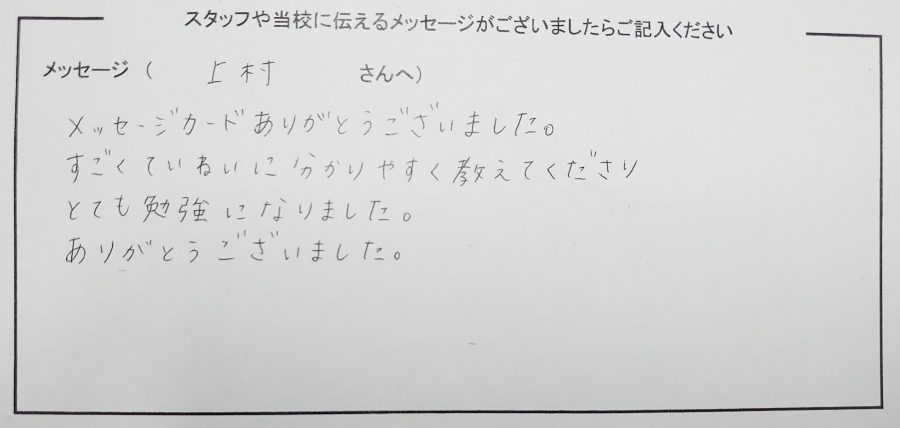 スタッフや当校に伝えるメッセージがございましたらご記入ください
メッセージ（ 上村 さんへ）
メッセージカードありがとうございました。
すごくていねいに分かりやすく教えてくださり
とても勉強になりました。
ありがとうございました。